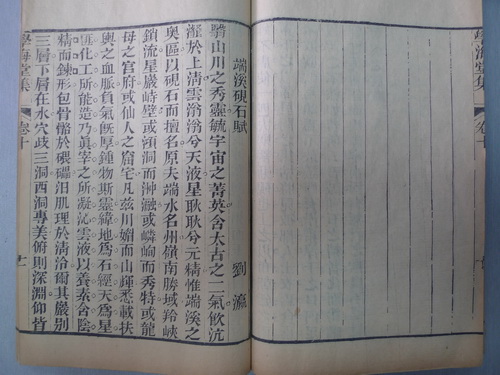 學海堂集 卷十
端溪硯石賦 劉瀛
山川之秀靈毓宇宙之菁英含太古之二氣飲沆
瀣於上清雲滃滃兮天液星耿耿兮元精惟端溪之
奧區以硯石而擅名原夫端水名州嶺南勝域羚峽
鎖流星巖峙壁或澒洞而瀜或嶙峋而秀特或龍
母之宮府或仙人之窟宅凡茲川媚而山輝悉載扶
輿之血脈負氣旣厚鍾物斯靈緯地爲石經天爲星
匪化工所能造乃眞宰之所凝沁雲液以養素含陰
精而鍊形包骨髓於肌理於淸泠爾其巖別
三層下層在水穴歧三洞西洞專美俯則深淵仰皆
學海堂集 卷十 十一